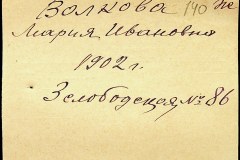 Волкова 140
Мария Ивановна
1902 г.
Зелободская № 86